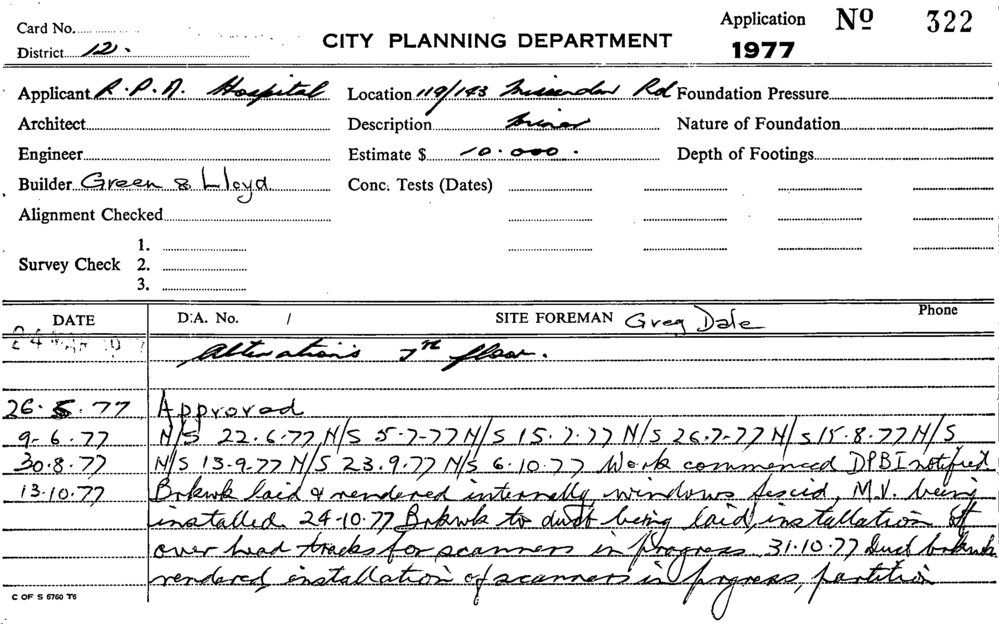 Card No.
District 12.
CITY PLANNING DEPARTMENT
Application Nº 322
1977
Applicant R.P.A. Hospital
Location 119/143 Missenden Rd
Foundation Pressure
Architect
Description Minor
Nature of Foundation
Engineer
Estimate $ 10.000.
Depth of Footings
Builder Green & Lloyd
Conc. Tests (Dates)
Alignment Checked
Survey Check 1.
2.
3.
DATE D.A. No. / SITE FOREMAN Greg Dale Phone
Alterations 7th floor.
26.5.77 Approved
9-6.77 N/S 22.6.77 N/S 5-7-77 N/S 15.7.77 N/S 26.7-77 N/S 15.8.77 N/S
30.8.77 N/S 13-9-77 N/S 23.9.77 N/S 6.10.77 Work commenced DPBI notified
13.10.77 Brkwk laid & rendered internally, windows fixed, M.V. being
installed. 24-10.77 Brkwk to duct being laid, installation of
over head tracks for scanners in progress 31.10.77 Duct brkwk
rendered, installation of scanners in progress, partition
C OF S 6760 T6